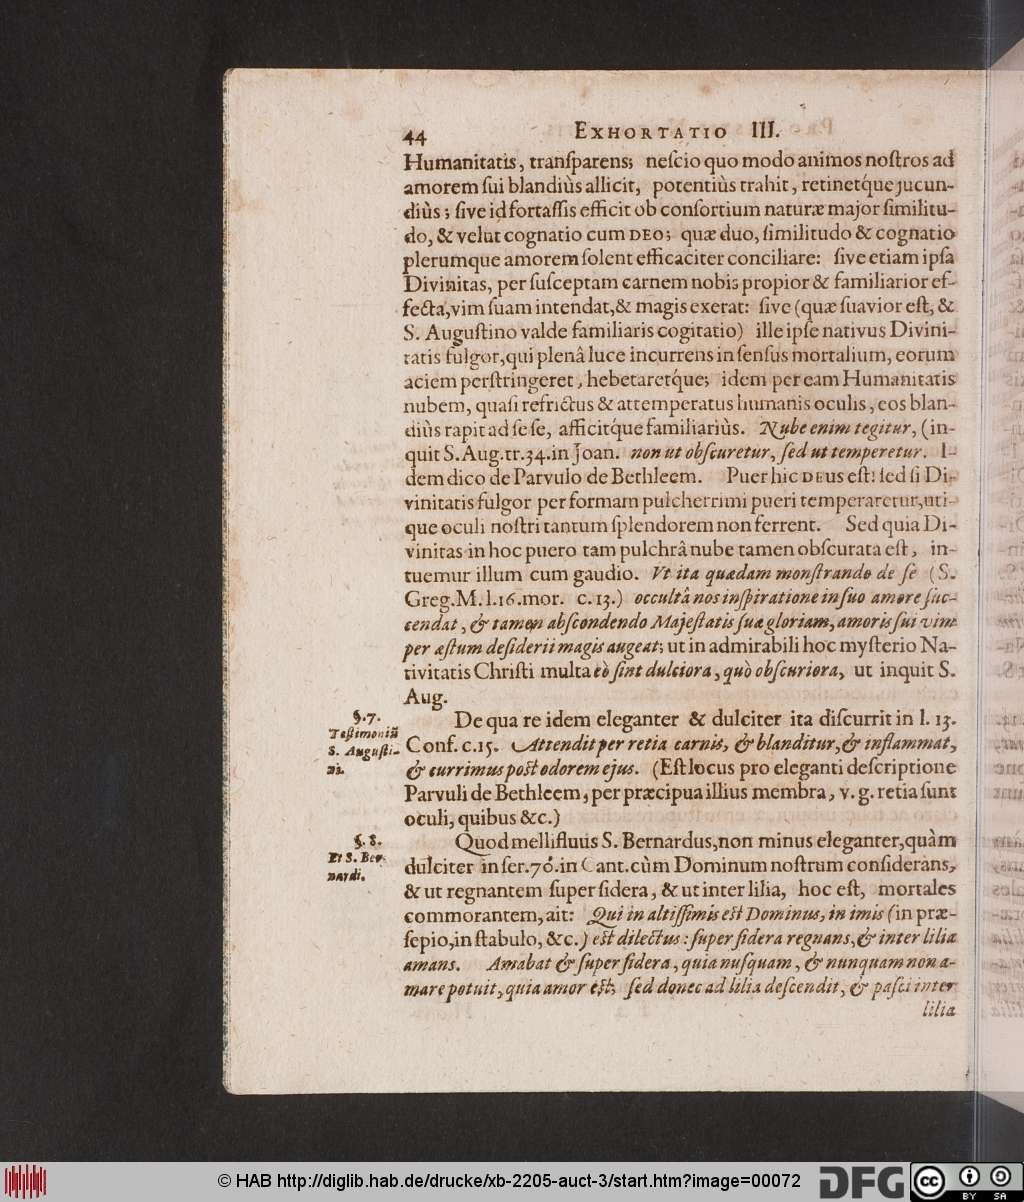 44 EXHORTATIO III.
Humanitatis, tranſparens; neſcio quo modo animos noſtros ad
amorem ſui blandiùs allicit, potentiùs trahit, retinetq́ue jucun-
diùs; ſive id fortaſſis efficit ob conſortium naturæ major ſimilitu-
do, & velut cognatio cum DEO; quæ duo, ſimilitudo & cognatio
plerumque amorem ſolent efficaciter conciliare: ſive etiam ipſa
Divinitas, per ſuſceptam carnem nobis propior & familiarior ef-
fecta, vim ſuam intendat, & magis exerat: ſive (quæ ſuavior eſt, &
S. Auguſtino valde familiaris cogitatio) ille ipſe nativus Divini-
tatis fulgor, qui plenâ luce incurrens in ſenſus mortalium, eorum
aciem perſtringeret, hebetaretq́ue; idem per eam Humanitatis
nubem, quaſi refrictus & attemperatus humanis oculis, eos blan-
diùs rapit ad ſe ſe, afficitq́ue familiariùs. Nube enim tegitur, (in-
quit S. Aug. tr. 34. in Joan. non ut obſcuretur, ſed ut temperetur. I-
dem dico de Parvulo de Bethleem. Puer hic DEus eſt: ſed ſi Di-
vinitatis fulgor per formam pulcherrimi pueri temperaretur, uti-
que oculi noſtri tantum ſplendorem non ferrent. Sed quia Di-
vinitas in hoc puero tam pulchrâ nube tamen obſcurata eſt, in-
tuemur illum cum gaudio. Vt ita quædam monſtrando de ſe (S.
Greg. M. l. 16. mor. c. 13.) occultâ nos inſpiratione in ſuo amore ſuc-
cendat, & tamen abſcondendo Majeſtatis ſuæ gloriam, amoris ſui vim
per æſtum deſiderii magis augeat; ut in admirabili hoc myſterio Na-
tivitatis Chriſti multa eò ſint dulciora, quò obſcuriora, ut inquit S.
Aug.
§. 7.
Teſtimoniũ
S. Auguſti-
ni.
De qua re idem eleganter & dulciter ita diſcurrit in l. 13.
Conf. c. 15. Attendit per retia carnis, & blanditur, & inflammat,
& currimus poſt odorem ejus. (Eſt locus pro eleganti deſcriptione
Parvuli de Bethleem, per præcipua illius membra, v. g. retia ſunt
oculi, quibus &c.)
§. 8.
Et S. Ber-
nardi.
Quod mellifluus S. Bernardus, non minus eleganter, quàm
dulciter in ſer. 70. in Cant. cùm Dominum noſtrum conſiderans,
& ut regnantem ſuper ſidera, & ut inter lilia, hoc eſt, mortales
commorantem, ait: Qui in altiſſimis eſt Dominus, in imis (in præ-
ſepio, in ſtabulo, &c.) eſt dilectus: ſuper ſidera regnans, & inter lilia
amans. Amabat & ſuper ſidera, quia nuſquam, & nunquam non a-
mare potuit, quia amor eſt; ſed donec ad lilia deſcendit, & paſci inter
lilia
© HAB http://diglib.hab.de/drucke/xb-2205-auct-3/start.htm?image=00072
DFG
cc BY SA